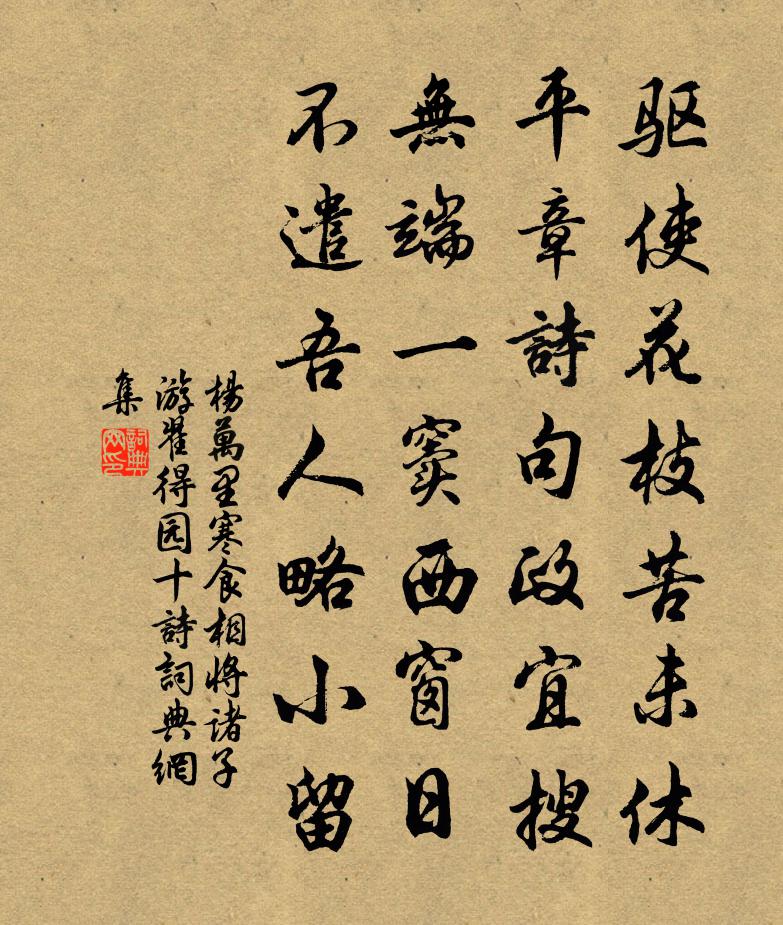 驱使花枝苦未休
平章詩句政宜搜
無端一窦西窗日
不遣吾人略小留
楊萬里寒食相将诸子
游翟得园十詩詞典網
集
詞典
网印